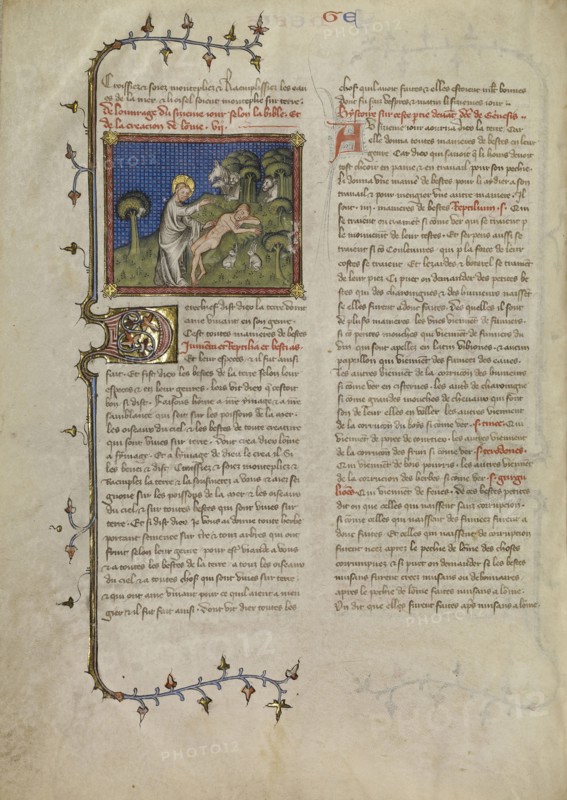 GE
Croissiez & soiez monteplies & Raemplissiez les eau
es de la mer & li oisel soient monteplie sur terre.
de louvrage du sisieme iour selon la bible. Et
de la creacion de lome. vij.
Derechief dist dieu la terre doint
ame vivant en son genre.
Cest toutes manieres de bestes
Jumenta Reptilia et bestias
Et leur especes & il fut ainsi
fait. Et fist dieu les bestes de la terre selon leur
especes & en leur genres. lors vit dieu qe cestoit
bon si dist. Faisons home a nre ymage & a nre
samblance qui soit sur les poissons de la mer.
les oiseaux du ciel & les bestes de toute creature
qui sont vives sur terre. Dont crea dieu lome
a symage. Et a lymage de dieu le crea il. Si
les beney & dist. Croissiez & soiez monteplies &
Raemplez la terre & la sousmetez a vous & aiez sei
gnorie sur les poissons de la mer & les oiseaux
du ciel & sur toutes bestes qui sont vives sur
terre. Et si dist dieu Je vous ai donne toute herbe
portant semence sur tre & tous arbres qui ont
fruit selon leur genre pour est viande a vous
& a toutes les bestes de la terre a tous les oiseaux
du ciel & a toutes choses qui sont vives sur terre
& qui ont ame vivant pour ce quil aient a men
gier & il fut fait ainsi. Dont vit dieu toutes les
choses quil avoit faites & elles estoient mlt bonnes
Dont fu fait vespres & matin li sisiemes iour
Hystoire sur ceste ptie devant dite de Genesis
Au sisieme iour aourna dieu la terre. Car
elle donna toutes manieres de bestes en leur
genre. Car dieu qui savoit q li hons devoit
cheoir en paine & en travail pour son pechie
li donna une maniere de bestes pour li aidier a son
travail & pour mengier une autre maniere. Il
sont iij manieres de bestes Reptilium. s. Qui
se traient
le mouvement de leur Et serpens aussi se
traient si come Couleuvres qui p la force de leur
costes se traient Et lezardes & se traient
de leur piez Ci puet on demander des petites be
stes qui des charoingnes & des humeurs naissent
se elles furent adont faites. Des quelles il sont
de plusieurs manieres les unes viennent de fumiers
si come petites mouches qui viennent de fumees du
vin qui sont appellez en latin vibiones & aucun
papeillon qui viennent des fumees des eaues.
Les autres viennent de la corrupcion des humeurs
si come vers en cisternes. les autres de charoingne
si come grandes mouches de chevaux qui sont
les autres viennent
de la corrupcion du bois si come vers. s. tinee. Qui
viennent de les autres viennent
de la corrupcion des fruis si come vers. s. terredones.
Qui viennent de bois pourris. les autres viennent
de la corrupcion des herbes si come vers. s. gurgu
liones. Qui viennent de feves. De ces bestes petites
dit on que celles qui naissent sans corrupcion.
si come celles qui naissent des fumees furent a
dont faites. Et celles qui naissent de corrupcion
furent nees apres le pechie de lome des choses
corrumpues & si puet on demander se les bestes
nuisans furent crees nuisans ou debonnaires
apres le pechie de lome faites nuisans a lome.
On dit que elles furent faites apres nuisans a lome
PHOTO12
PHOTO12
PHOTO12
PHOTO12